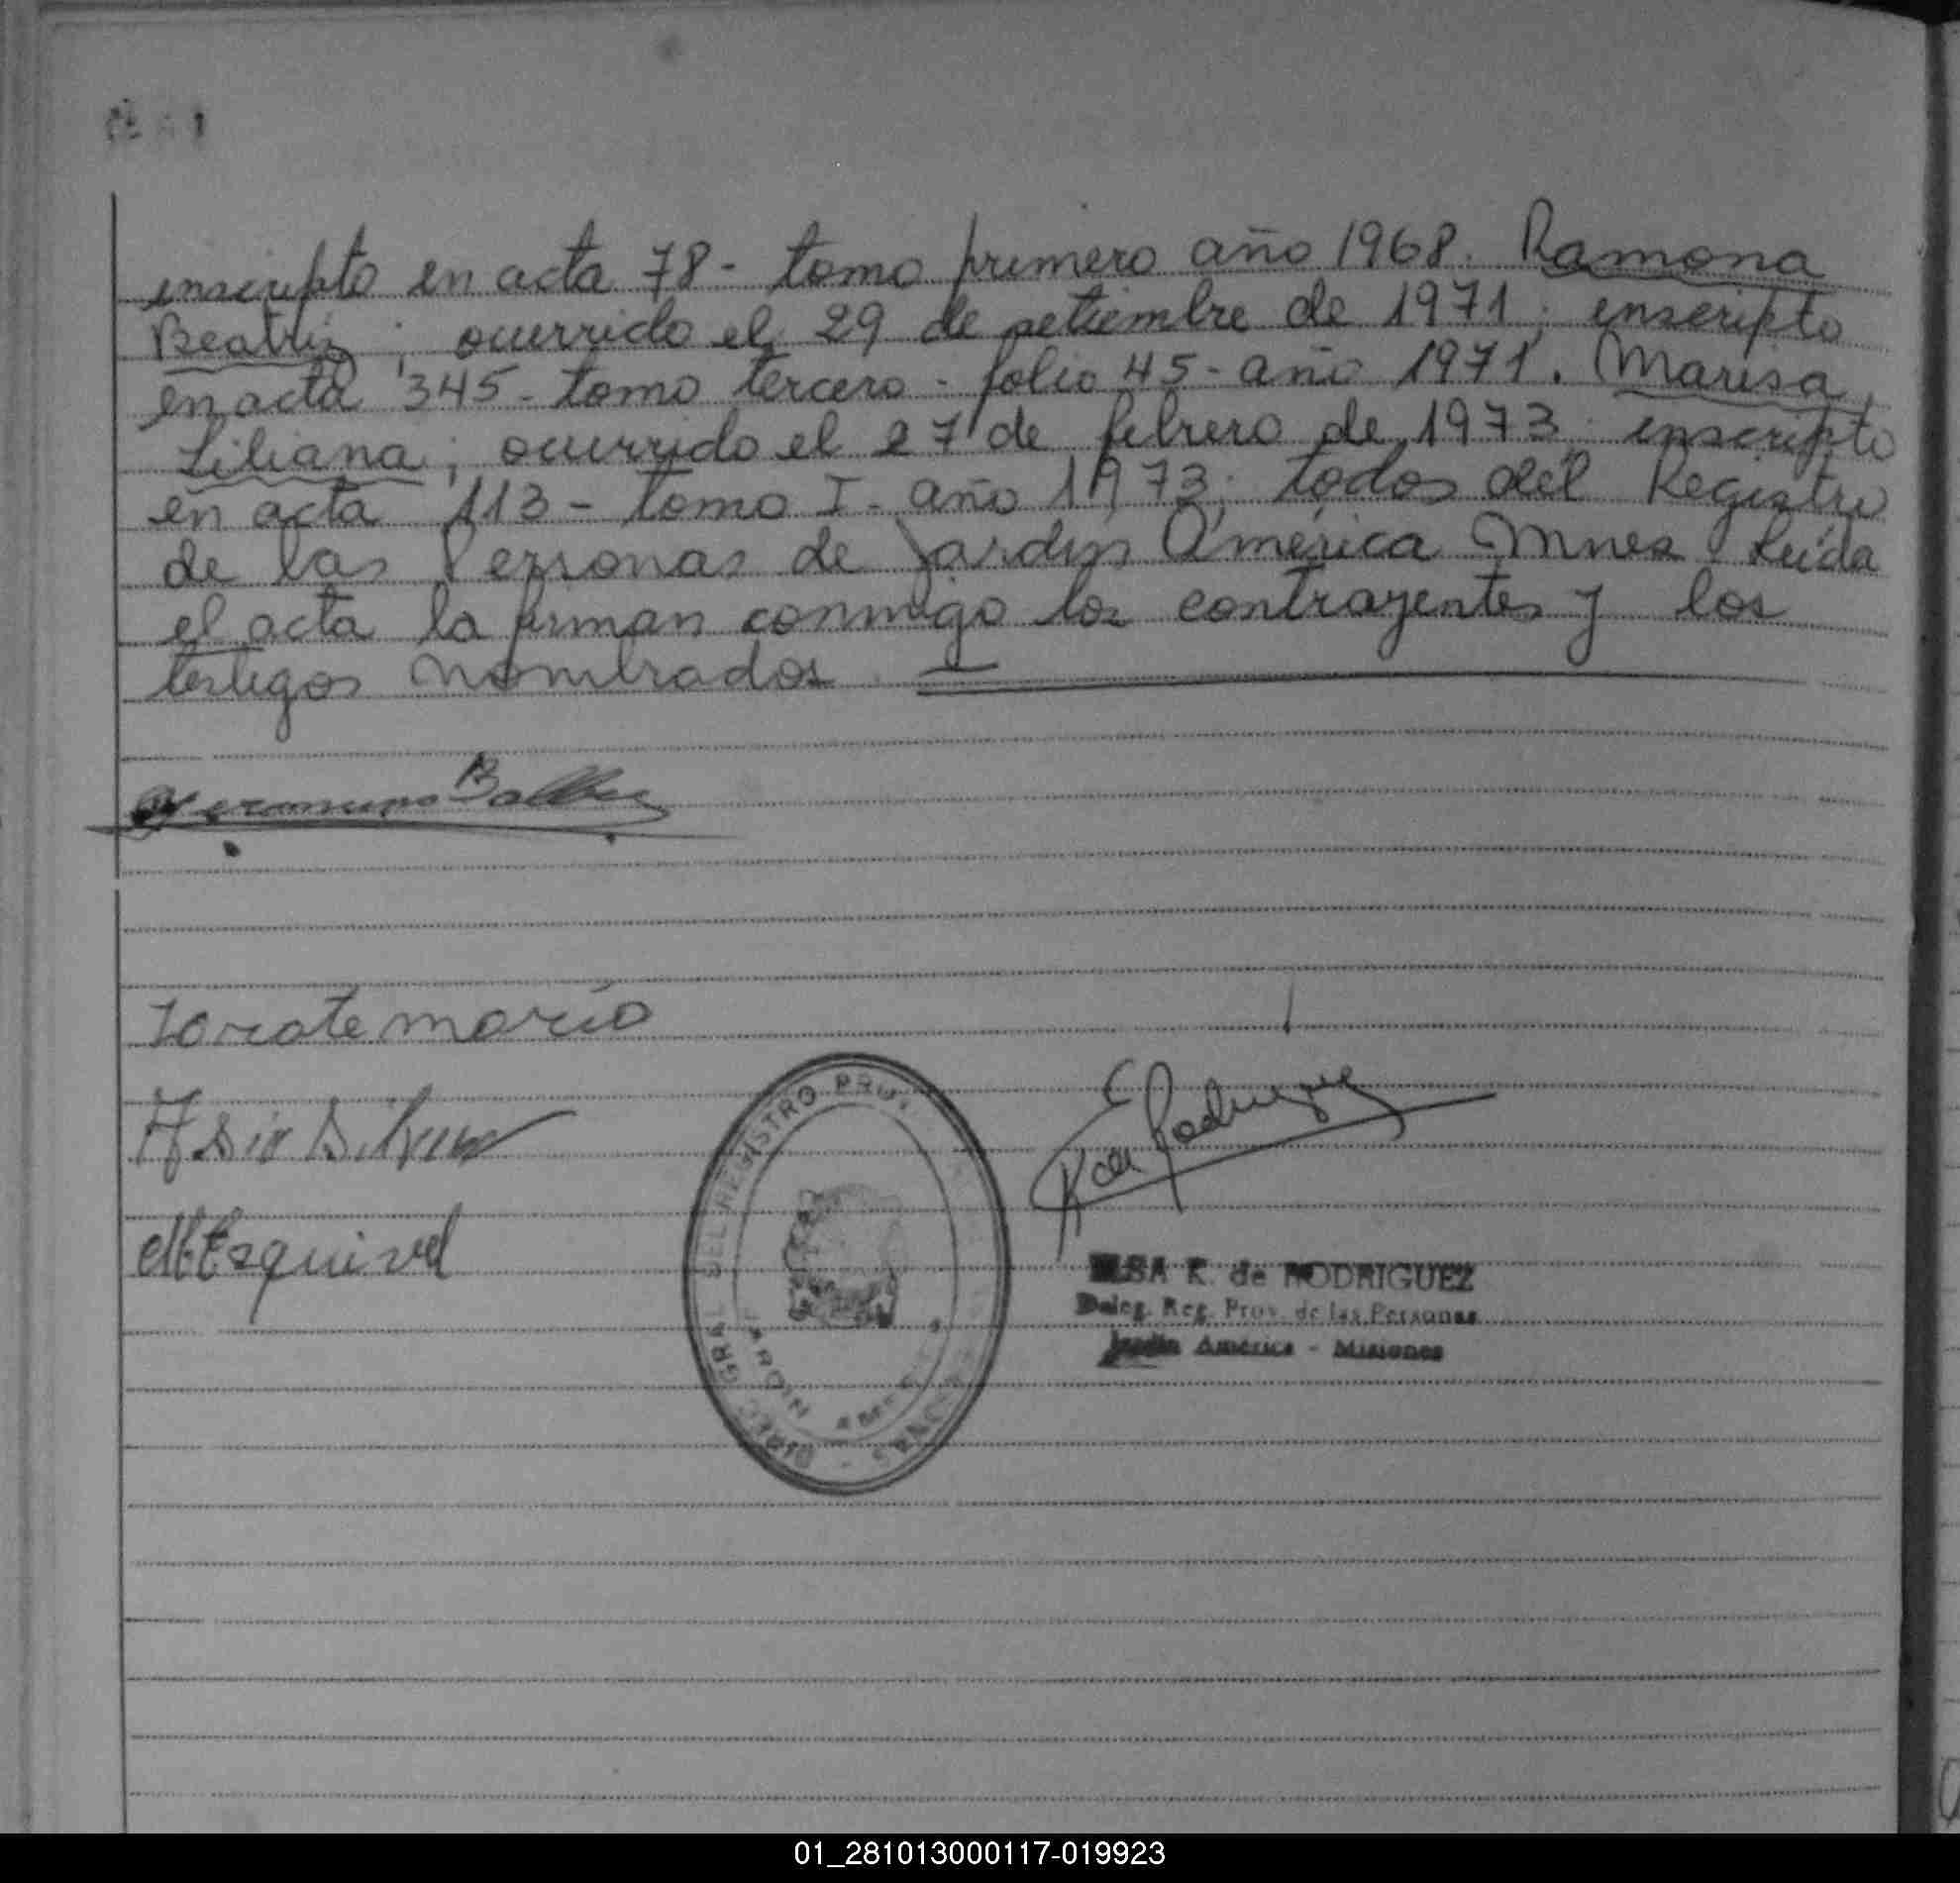 inscripto en acta 78 - tomo primero año 1968. Ramona
Beatriz; ocurrido el 29 de setiembre de 1971; inscripto
en acta 345 - tomo tercero - folio 45 - año 1971. Marisa
Liliana; ocurrido el 27 de febrero de 1973; inscripto
en acta 113 - tomo I - año 1973; todos del Registro
de las Personas de Jardín América Mnes. Leída
el acta la firman conmigo los contrayentes y los
testigos nombrados.
Zorate mario
Esquivel
E K de Rodriguez
DIREC. GRAL. DEL REGISTRO PROV.
PERSONAS
JARDIN
ELSA K. de RODRIGUEZ
Deleg. Reg. Prov. de las Personas
Jardín América - Misiones
01_281013000117-019923